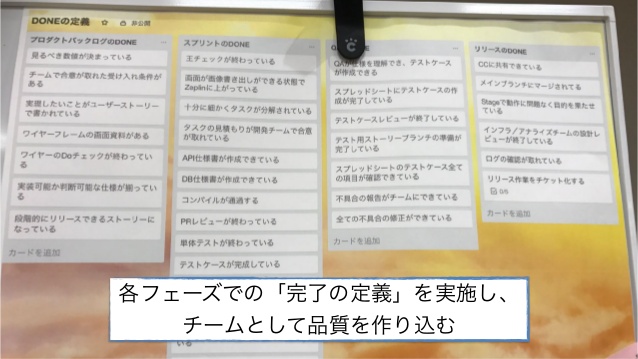 DONEの定義 ☆ 非公開
プロダクトバックログのDONE
見るべき数値が決まっている
チームで合意が取れた受け入れ条件が
ある
実現したいことがユーザーストーリー
で書かれている
ワイヤーフレームの画面資料がある
ワイヤーのDoチェックが終わってい
る
実装可能か判断可能な仕様が揃ってい
る
段階的にリリースできるストーリーに
なっている
カードを追加
スプリントのDONE
王チェックが終わっている
画面が画像書き出しができる状態で
Zeplinに上がっている
十分に細かくタスクが分解されている
タスクの見積もりが開発チームで合意
が取れている
API仕様書が作成できている
DB仕様書が作成できている
コンパイルが通過する
PRレビューが終わっている
単体テストが終わっている
テストケースが完成している
いる
QAが仕様を理解でき、テストケース
が作成できる
スプレッドシートにテストケースの作
成が完了している
テストケースレビューが終了している
テスト用ストーリーブランチの準備が
完了している
スプレッドシートのテストケース全て
の項目が確認できている
不具合の報告がチームにできている
全ての不具合の修正ができている
カードを追加
リリースのDONE
CCに共有できている
メインブランチにマージされてる
Stageで動作に問題なく目的を果たせ
ている
インフラ／アナライズチームの設計レ
ビューが終了している
ログの確認が取れている
リリース作業をチケット化する
0/6
カードを追加
各フェーズでの「完了の定義」を実施し、
チームとして品質を作り込む